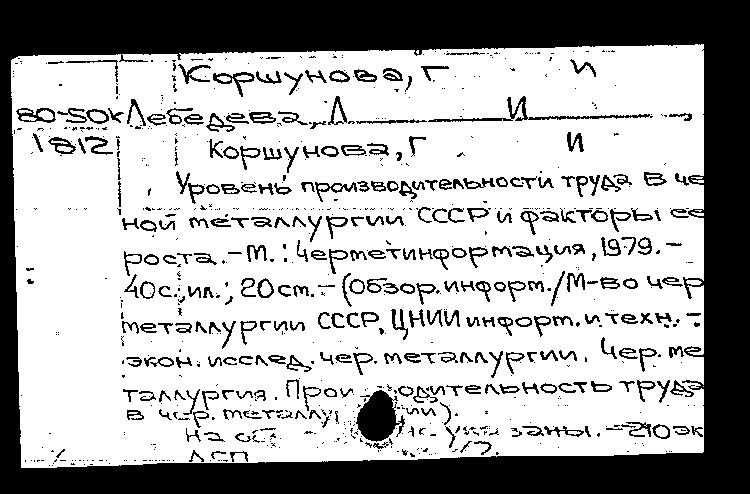 Коршунова, Г И
80-50к Лебедева, Л И
1812 Коршунова, Г И
Уровень производительности труда в че
ной металлургии СССР и факторы ее
роста. - М. : Черметинформация, 1979. -
40с., ил.; 20 ст. - (Обзор. информ./М-во чер
металлургии СССР, ЦНИИ информ. и техн. -
экон. исслед. чер. металлургии. Чер. ме
таллургия. Прои одительность труда
в чер. металлу ии).
На об заны. - 210 эк
ДСП